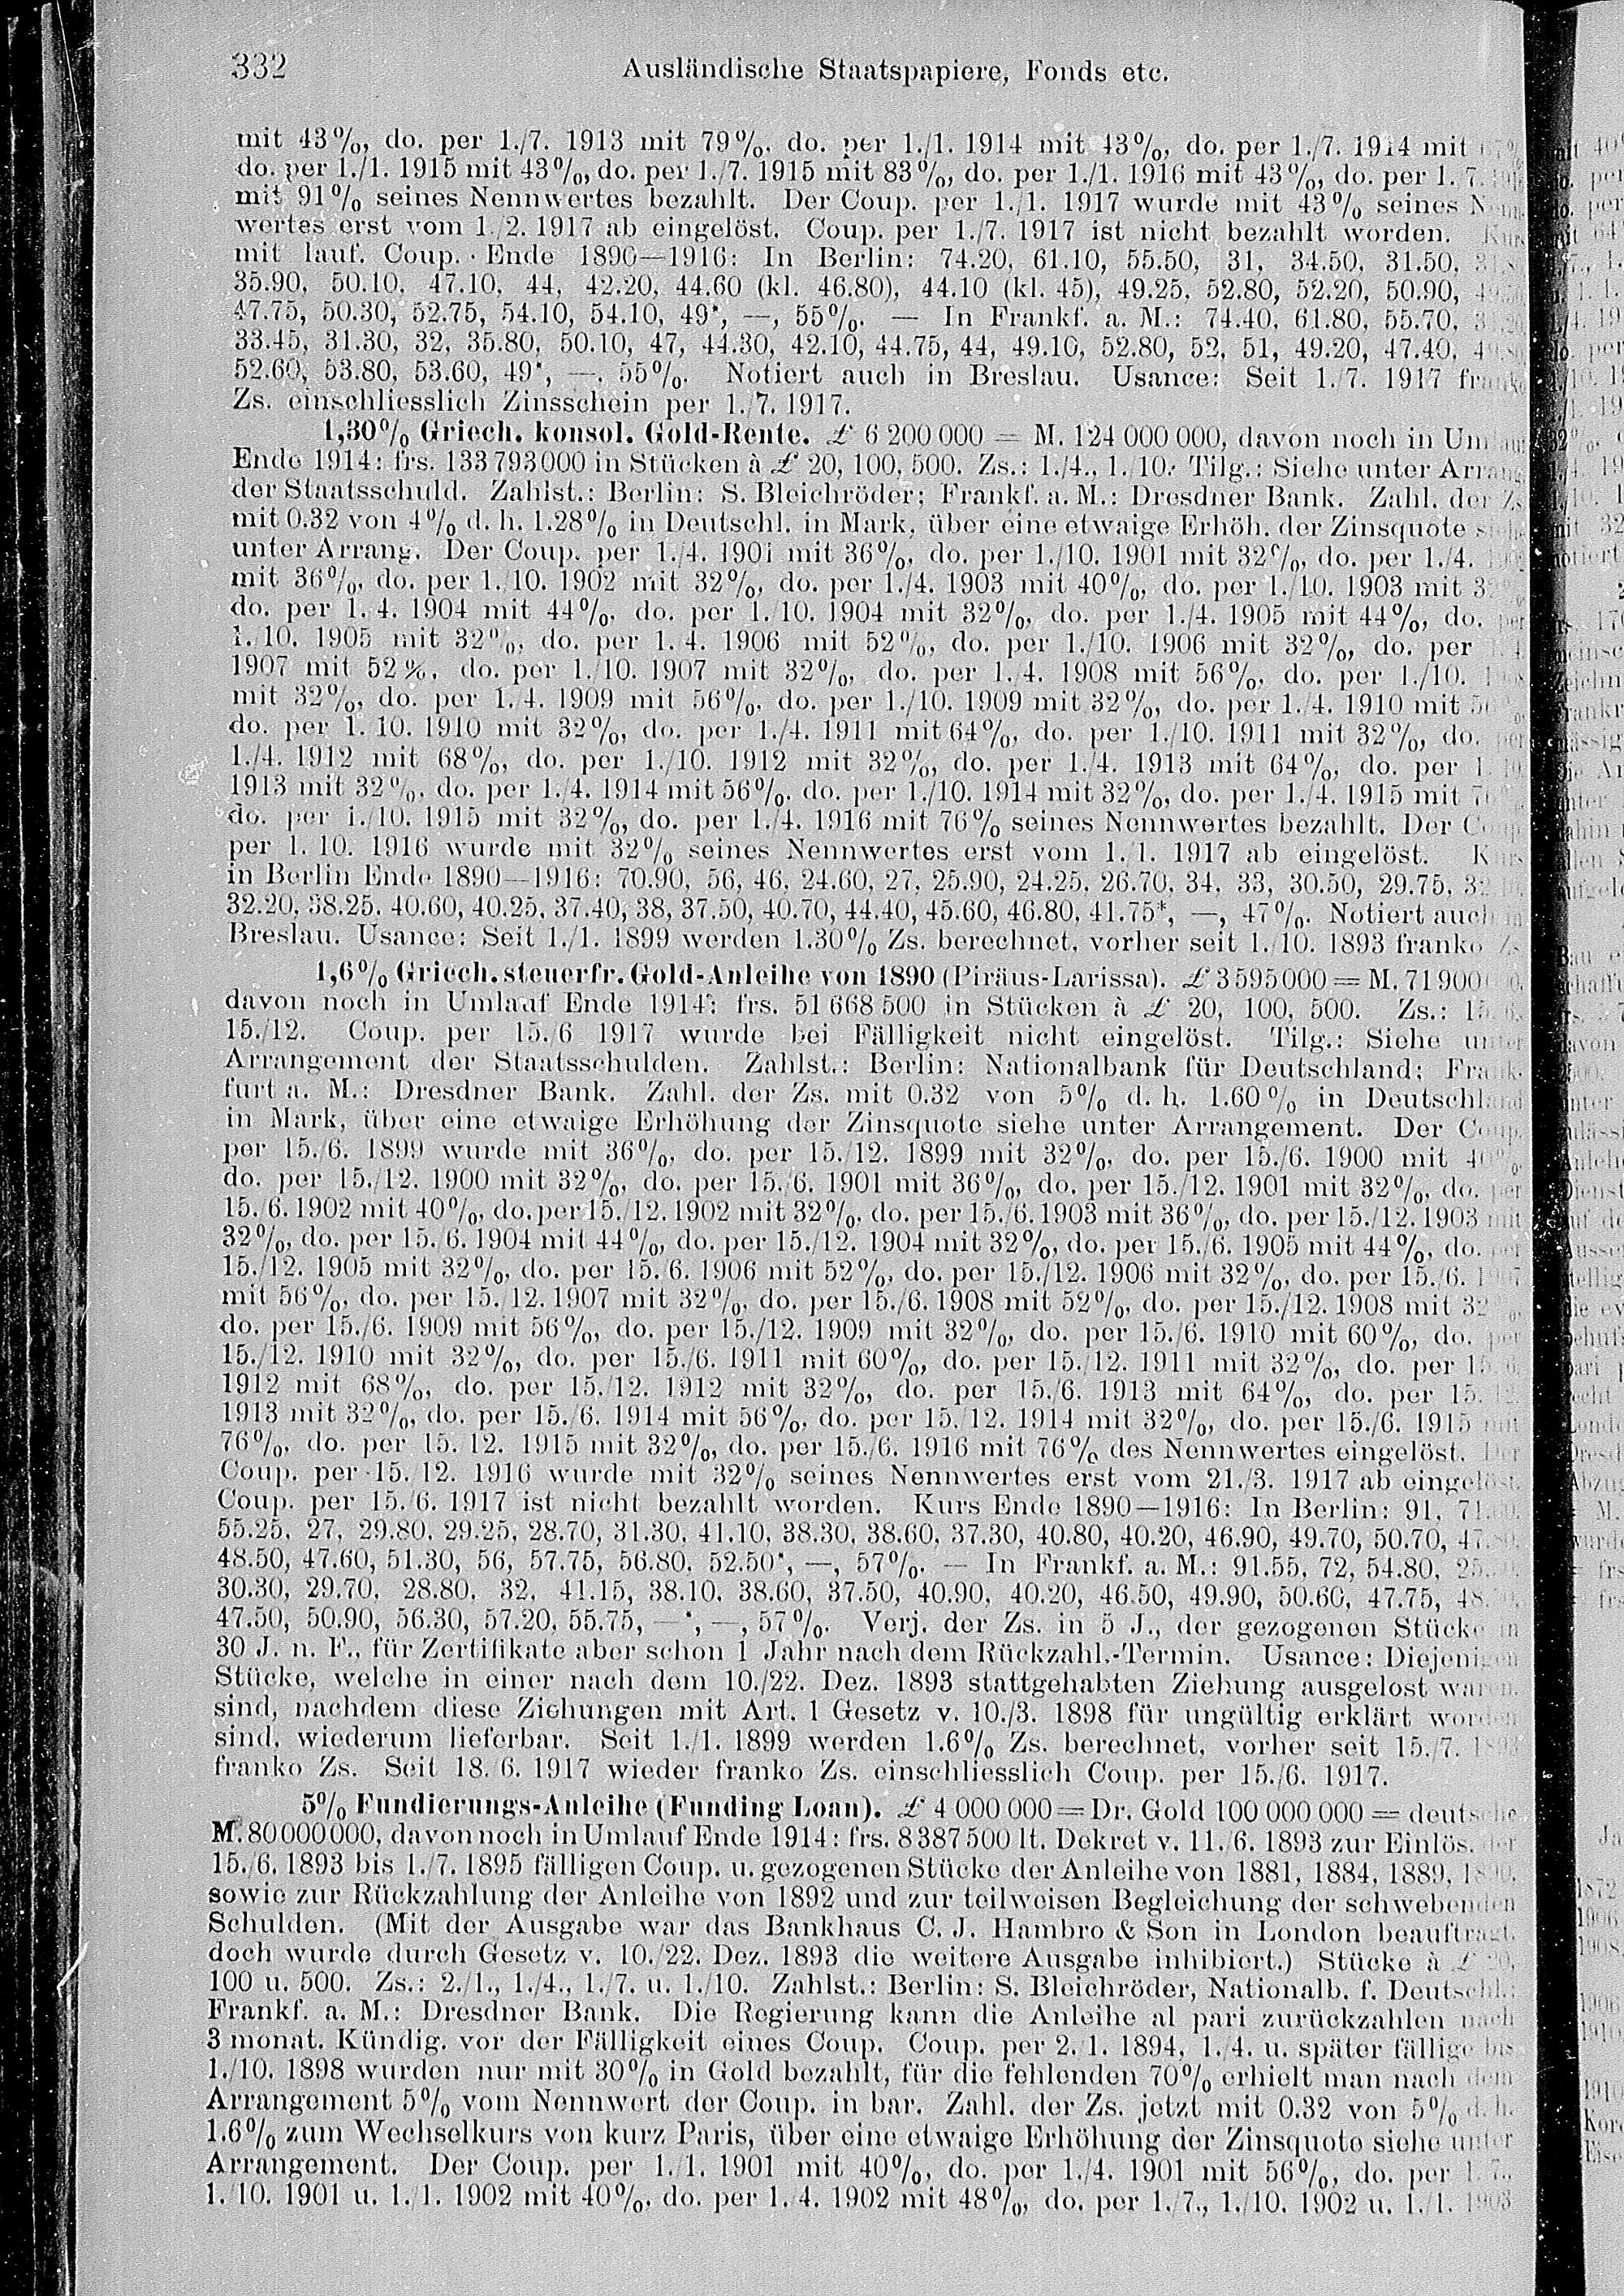 332
Ausländische Staatspapiere, Fonds etc.
mit 43%, do. per 1./7. 1913 mit 79%, do. per 1./1. 1914 mit 43%, do. per 1./7. 1914 mit
do. per 1./1. 1915 mit 43%, do. per 1./7. 1915 mit 83%, do. per 1./1. 1916 mit 43%, do. per 1. 7.
mit 91% seines Nennwertes bezahlt. Der Coup. per 1./1. 1917 wurde mit 43% seines
wertes erst vom 1./2. 1917 ab eingelöst. Coup. per 1./7. 1917 ist nicht bezahlt worden. Kurs
mit lauf. Coup. Ende 1890—1916: In Berlin: 74.20, 61.10, 55.50, 31, 34.50, 31.50,
35.90, 50.10, 47.10, 44, 42.20, 44.60 (kl. 46.80), 44.10 (kl. 45), 49.25, 52.80, 52.20, 50.90,
47.75, 50.30, 52.75, 54.10, 54.10, 49*, —, 55%. — In Frankf. a. M.: 74.40, 61.80, 55.70,
33.45, 31.30, 32, 35.80, 50.10, 47, 44.30, 42.10, 44.75, 44, 49.10, 52.80, 52, 51, 49.20, 47.40,
52.60, 53.80, 53.60, 49*, —, 55%. Notiert auch in Breslau. Usance: Seit 1./7. 1917 franko
Zs. einschliesslich Zinsschein per 1./7. 1917.
1,30% Griech. konsol. Gold-Rente. £ 6 200 000 = M. 124 000 000, davon noch in Umlauf
Ende 1914: frs. 133 793 000 in Stücken à £ 20, 100, 500. Zs.: 1./4., 1./10. Tilg.: Siehe unter Arrang.
der Staatsschuld. Zahlst.: Berlin: S. Bleichröder; Frankf. a. M.: Dresdner Bank. Zahl. der Zs.
mit 0.32 von 4% d. h. 1.28% in Deutschl. in Mark, über eine etwaige Erhöh. der Zinsquote siehe
unter Arrang. Der Coup. per 1./4. 1901 mit 36%, do. per 1./10. 1901 mit 32%, do. per 1./4. 1902
mit 36%, do. per 1./10. 1902 mit 32%, do. per 1./4. 1903 mit 40%, do. per 1./10. 1903 mit 32%,
do. per 1. 4. 1904 mit 44%, do. per 1./10. 1904 mit 32%, do. per 1./4. 1905 mit 44%, do. per
1./10. 1905 mit 32%, do. per 1. 4. 1906 mit 52%, do. per 1./10. 1906 mit 32%, do. per 1. 4.
1907 mit 52%, do. per 1./10. 1907 mit 32%, do. per 1./4. 1908 mit 56%, do. per 1./10. 1908
mit 32%, do. per 1./4. 1909 mit 56%, do. per 1./10. 1909 mit 32%, do. per 1./4. 1910 mit
do. per 1. 10. 1910 mit 32%, do. per 1./4. 1911 mit 64%, do. per 1./10. 1911 mit 32%, do. per
1./4. 1912 mit 68%, do. per 1./10. 1912 mit 32%, do. per 1./4. 1913 mit 64%, do. per 1. 10.
1913 mit 32%, do. per 1./4. 1914 mit 56%, do. per 1./10. 1914 mit 32%, do. per 1./4. 1915 mit
do. per 1./10. 1915 mit 32%, do. per 1./4. 1916 mit 76% seines Nennwertes bezahlt. Der Coup.
per 1. 10. 1916 wurde mit 32% seines Nennwertes erst vom 1./1. 1917 ab eingelöst. Kurs
in Berlin Ende 1890—1916: 70.90, 56, 46, 24.60, 27, 25.90, 24.25, 26.70, 34, 33, 30.50, 29.75,
32.20, 38.25, 40.60, 40.25, 37.40, 38, 37.50, 40.70, 44.40, 45.60, 46.80, 41.75*, —, 47%. Notiert auch in
Breslau. Usance: Seit 1./1. 1899 werden 1.30% Zs. berechnet, vorher seit 1./10. 1893 franko Zs.
1,6% Griech. steuerfr. Gold-Anleihe von 1890 (Piräus-Larissa). £ 3 595 000 = M. 71 900 000,
davon noch in Umlauf Ende 1914: frs. 51 668 500 in Stücken à £ 20, 100, 500. Zs.: 15./6.,
15./12. Coup. per 15./6 1917 wurde bei Fälligkeit nicht eingelöst. Tilg.: Siehe unter
Arrangement der Staatsschulden. Zahlst.: Berlin: Nationalbank für Deutschland; Frank-
furt a. M.: Dresdner Bank. Zahl. der Zs. mit 0.32 von 5% d. h. 1.60% in Deutschland
in Mark, über eine etwaige Erhöhung der Zinsquote siehe unter Arrangement. Der Coup.
per 15./6. 1899 wurde mit 36%, do. per 15./12. 1899 mit 32%, do. per 15./6. 1900 mit 40%,
do. per 15./12. 1900 mit 32%, do. per 15./6. 1901 mit 36%, do. per 15./12. 1901 mit 32%, do. per
15./6. 1902 mit 40%, do. per 15./12. 1902 mit 32%, do. per 15./6. 1903 mit 36%, do. per 15./12. 1903 mit
32%, do. per 15./6. 1904 mit 44%, do. per 15./12. 1904 mit 32%, do. per 15./6. 1905 mit 44%, do. per
15./12. 1905 mit 32%, do. per 15./6. 1906 mit 52%, do. per 15./12. 1906 mit 32%, do. per 15./6. 1907
mit 56%, do. per 15./12. 1907 mit 32%, do. per 15./6. 1908 mit 52%, do. per 15./12. 1908 mit 32%,
do. per 15./6. 1909 mit 56%, do. per 15./12. 1909 mit 32%, do. per 15./6. 1910 mit 60%, do. per
15./12. 1910 mit 32%, do. per 15./6. 1911 mit 60%, do. per 15./12. 1911 mit 32%, do. per 15./6.
1912 mit 68%, do. per 15./12. 1912 mit 32%, do. per 15./6. 1913 mit 64%, do. per 15./12.
1913 mit 32%, do. per 15./6. 1914 mit 56%, do. per 15./12. 1914 mit 32%, do. per 15./6. 1915 mit
76%, do. per 15. 12. 1915 mit 32%, do. per 15./6. 1916 mit 76% des Nennwertes eingelöst. Der
Coup. per 15./12. 1916 wurde mit 32% seines Nennwertes erst vom 21./3. 1917 ab eingelöst.
Coup. per 15./6. 1917 ist nicht bezahlt worden. Kurs Ende 1890—1916: In Berlin: 91,
55.25, 27, 29.80, 29.25, 28.70, 31.30, 41.10, 38.30, 38.60, 37.30, 40.80, 40.20, 46.90, 49.70, 50.70,
48.50, 47.60, 51.30, 56, 57.75, 56.80, 52.50*, —, 57%. — In Frankf. a. M.: 91.55, 72, 54.80,
30.30, 29.70, 28.80, 32, 41.15, 38.10, 38.60, 37.50, 40.90, 40.20, 46.50, 49.90, 50.60, 47.75,
47.50, 50.90, 56.30, 57.20, 55.75, —*, —, 57%. Verj. der Zs. in 5 J., der gezogenen Stücke in
30 J. n. F., für Zertifikate aber schon 1 Jahr nach dem Rückzahl.-Termin. Usance: Diejenigen
Stücke, welche in einer nach dem 10./22. Dez. 1893 stattgehabten Ziehung ausgelost waren,
sind, nachdem diese Ziehungen mit Art. 1 Gesetz v. 10./3. 1898 für ungültig erklärt worden
sind, wiederum lieferbar. Seit 1./1. 1899 werden 1.6% Zs. berechnet, vorher seit 15./7. 1893
franko Zs. Seit 18./6. 1917 wieder franko Zs. einschliesslich Coup. per 15./6. 1917.
5% Fundierungs-Anleihe (Funding Loan). £ 4 000 000 = Dr. Gold 100 000 000 = deutsche
M. 80 000 000, davon noch in Umlauf Ende 1914: frs. 8 387 500 lt. Dekret v. 11./6. 1893 zur Einlös. der
15./6. 1893 bis 1./7. 1895 fälligen Coup. u. gezogenen Stücke der Anleihe von 1881, 1884, 1889, 1890,
sowie zur Rückzahlung der Anleihe von 1892 und zur teilweisen Begleichung der schwebenden
Schulden. (Mit der Ausgabe war das Bankhaus C. J. Hambro & Son in London beauftragt,
doch wurde durch Gesetz v. 10./22. Dez. 1893 die weitere Ausgabe inhibiert.) Stücke à £ 20,
100 u. 500. Zs.: 2./1., 1./4., 1./7. u. 1./10. Zahlst.: Berlin: S. Bleichröder, Nationalb. f. Deutschl.;
Frankf. a. M.: Dresdner Bank. Die Regierung kann die Anleihe al pari zurückzahlen nach
3 monat. Kündig. vor der Fälligkeit eines Coup. Coup. per 2./1. 1894, 1./4. u. später fällige bis
1./10. 1898 wurden nur mit 30% in Gold bezahlt, für die fehlenden 70% erhielt man nach dem
Arrangement 5% vom Nennwert der Coup. in bar. Zahl. der Zs. jetzt mit 0.32 von 5% d. h.
1.6% zum Wechselkurs von kurz Paris, über eine etwaige Erhöhung der Zinsquote siehe unter
Arrangement. Der Coup. per 1./1. 1901 mit 40%, do. per 1./4. 1901 mit 56%, do. per 1./7.,
1./10. 1901 u. 1./1. 1902 mit 40%, do. per 1./4. 1902 mit 48%, do. per 1./7., 1./10. 1902 u. 1./1. 1903